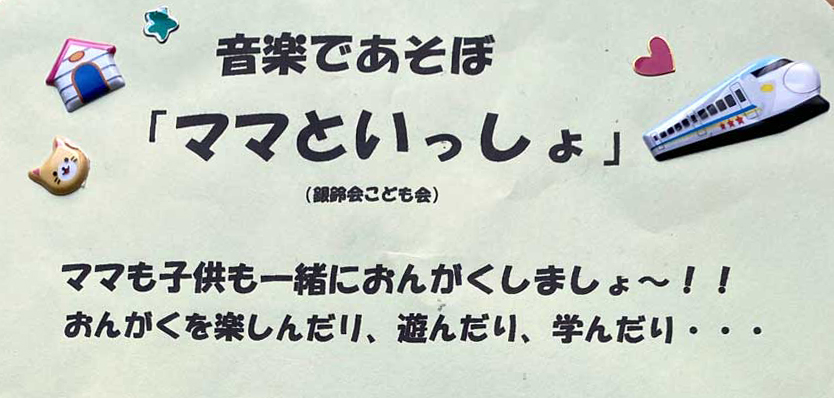 音楽であそぼ
「ママといっしょ」
（銀鈴会こども会）
ママも子供も一緒におんがくしましょ〜！！
おんがくを楽しんだり、遊んだり、学んだり・・・